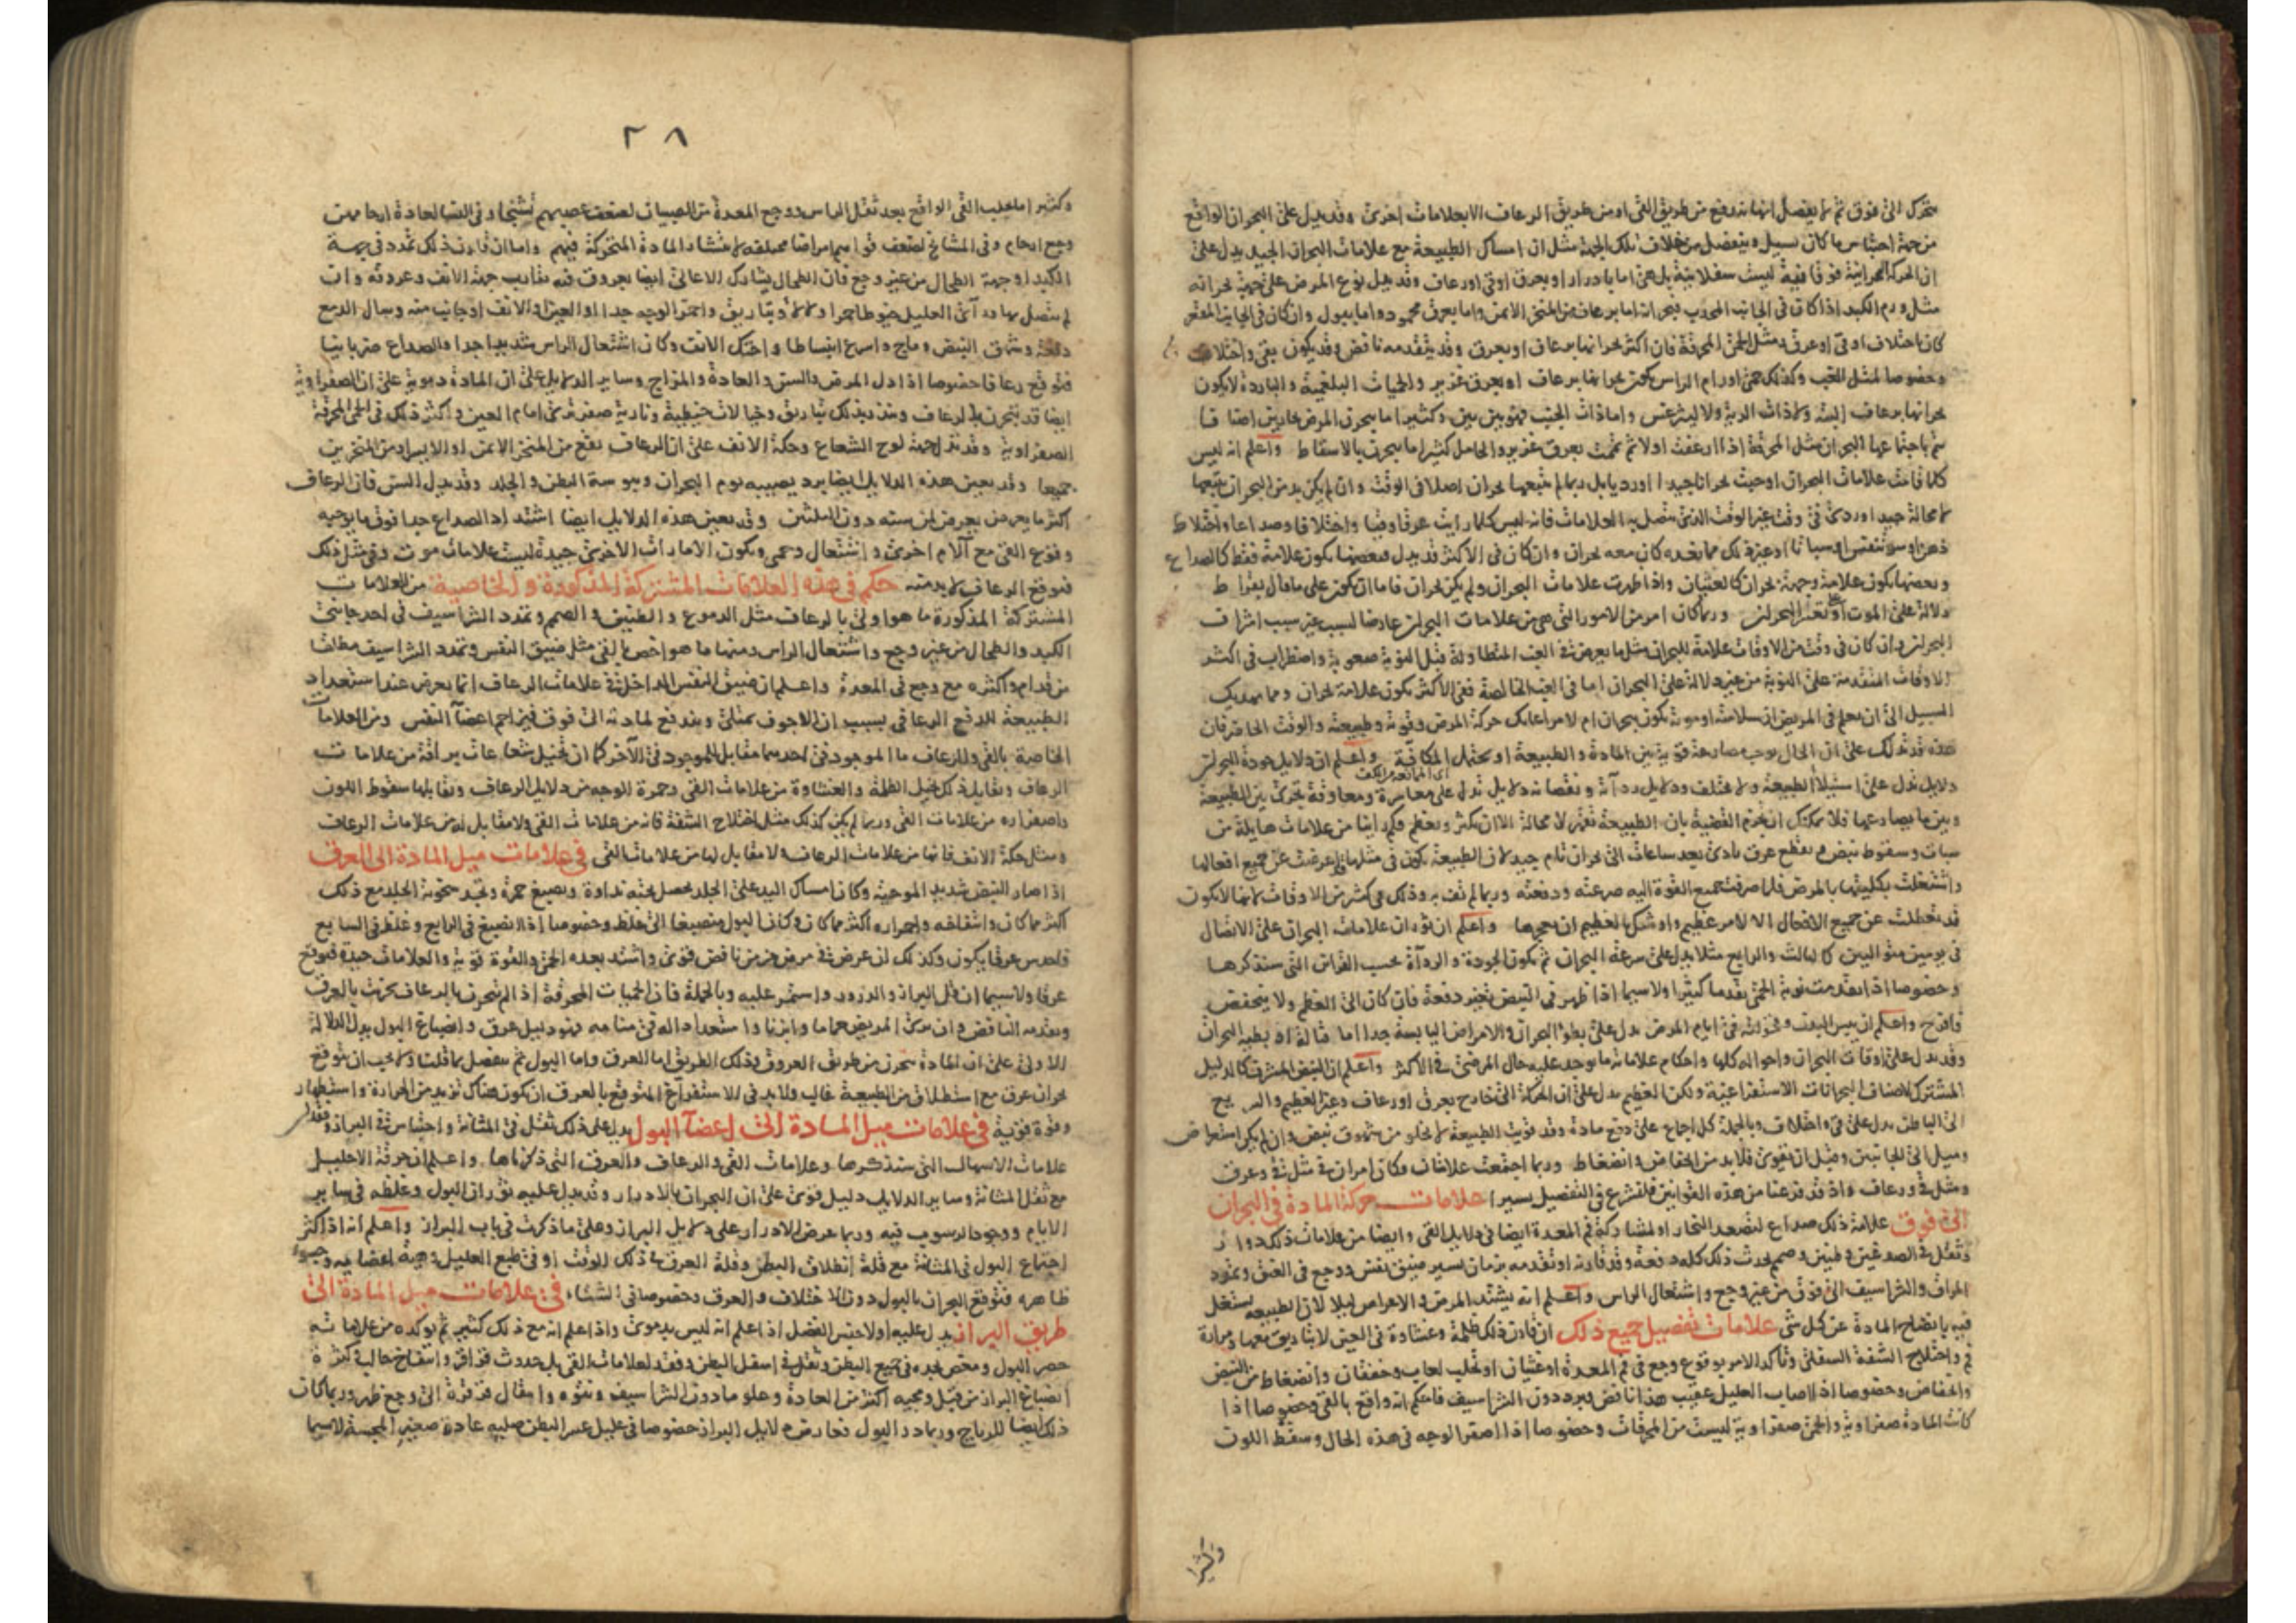 متحرك الى فوق ثم ما يفصل انها تندفع من طريق القى او من طريق الرعاف الا بعلامات اخرى وقد يدل على البحران الواقع
من جهة احتباس ما كان يسيل وينفصل من خلاف تلك الجهة مثل ان امساك الطبيعة مع علامات البحران الجيد يدل على
ان الحركة البحرانية فوقانية ليست سفلانية بل هى اما بادرار او بعرق او قى او رعاف وقد يدل نوع المرض على جهة بحرانه
مثل ورم الكبد اذا كان فى الجانب المحدب فبحرانه اما برعاف من المنخر الايمن واما بعرق محمود واما ببول وان كان فى الجانب المقعر
كان باختلاف او قى او عرق ومثل الحمى المحرقة فان اكثر بحرانها برعاف او بعرق وقد يتقدمه نافض وقد يكون بقى واختلاف
وخصوصا لمثل الغب وكذلك حمى اورام الراس يكون بحرانها برعاف او بعرق غزير والحميات البلغمية والباردة لا يكون
بحرانها برعاف البتة ولا ذات الرية ولا ليثرغس واما ذات الجنب فهو بين بين وكثيرا ما يبحرن المرض بحارين اصنافا
يتم باجتماعها البحران مثل المحرقة اذا ارعفت اولا ثم تممت بعرق غزير والحامل كثيرا ما يبحرن بالاسقاط واعلم انه ليس
كلما قامت علامات البحران اوجبت بحرانا جيدا او رديا بل ربما لم يتبعها بحران اصلا فى الوقت وان لم يكن بد من البحران يتبعها
لا محالة جيد او ردى فى وقت غير الوقت الذى يتصل به العلامات فانه ليس كلما رايت عرقا وقيا واختلافا وصداعا واختلاط
ذهن او سو تنفس او سباتا او غير ذلك مما نعده كان معه بحران وان كان فى الاكثر قد يدل فبعضها يكون علامة فقط كالصداع
وبعضها يكون علامة وجهة بحران كالغثيان واذا ظهرت علامات البحران ولم يكن بحران فاما ان يكون على ما قال بقراط
دلالة على الموت او على تعسر البحران وربما كان امر من الامور التى هى من علامات البحران عارضا لسبب غير سبب اشراف
البحران وان كان فى وقت من الاوقات علامة للبحران مثل ما يعرض فى الغب المتطاولة قبل النوبة صعوبة واضطراب فى اكثر
الاوقات المتقدمة على النوبة من غير دلالة على البحران اما فى الغب الخالصة ففى الاكثر يكون علامة بحران ومما يهديك
السبيل الى ان تعلم فى المريض ان سلامته او موته يكون ببحران ام لا مراعاتك حركة المرض وقوته وطبيعته والوقت الحاضر فان
هذه قد تدلك على ان الحال يوجب مصارعة قوية بين المادة والطبيعة او يحتمل المكافية واعلم ان دلايل جودة البحران
دلايل تدل على استيلا الطبيعة ولا تختلف ودلايل رداءته ونقصانه دلايل تدل على معاسرة ومعاوقة تجرى بين الطبيعة
وبين ما يصارعها فلا يمكنك ان تجزم القضية بان الطبيعة تقهر لا محالة الا ان يكثر ويعظم فكم راينا من علامات هايلة من
سبات وسقوط نبض وتقطع عرق تادى بعد ساعات الى بحران تام جيد لان الطبيعة يكون فى مثلها قد اعرضت عن جميع افعالها
واشتغلت بكليتها بالمرض فلما صرفت جميع القوة اليه صرعته ودفعته وربما لم تف به وذلك فى كثير من الاوقات لانها لا يكون
قد تعطلت عن جميع الافعال الا لامر عظيم واوشك بالعظيم ان يعجزها واعلم ان ثوران علامات البحران على الاتصال
فى يومين متواليين كالثالث والرابع مثلا يدل على سرعة البحران ثم يكون الجودة والرداة بحسب القراين التى سنذكرها
وخصوصا اذا تقدمت نوبة الحمى تقدما كثيرا ولا سيما اذا ظهر فى النبض تغير دفعة فان كان الى العظم ولا ينخفض
فافرح واعلم ان يبس البدن وقحولته فى ايام المرض يدل على بطو البحران والامراض اليابسة جدا اما قتالة او بطية البحران
وقد يدل على اوقات البحران واحواله كلها واحكام علاماته ما يوجد عليه حال المرضى فى الاكثر واعلم ان النبض المشرف كالدليل
المشترك لاصناف البحرانات الاستفراغية ولكن العظيم يدل على ان الحركة الى خارج بعرق او رعاف وغير العظيم والسريع
الى الباطن يدل على قى واختلاف وبالجملة كل اجماع على دفع مادة وقد قويت الطبيعة لا يخلو من شهوق نبض وان لم يكن استعراض
وميل الى الجانبين وقبل ان يقوى فلا بد من انخفاض وانضغاط وربما اجتمعت علامات وكان امران مثل قى وعرق
ومثل قى ورعاف واذ قد فرغنا من هذه القوانين فلنشرع فى التفصيل يسيرا علامات حركة المادة فى البحران
الى فوق علامة ذلك صداع لتصعد البخار او لمشاركة فم المعدة ايضا فى دلايل القى وايضا من علامات ذلك دوار
وثقل فى الصدغين وطنين وصمم يحدث ذلك كله دفعة وقد قارنه او تقدمه بزمان يسير ضيق نفس ووجع فى العنق وتمدد
المراق والشراسيف الى فوق من غير وجع واشتعال الراس واعلم انه يشتد المرض والاعراض ليلا لان الطبيعة تشتغل
فيه بانضاج المادة عن كل شى علامات تفصيل جميع ذلك ان قارن ذلك ظلمة وغشاوة فى العين لا تباريق معها ومرارة
فم واختلاج الشفة السفلى وتاكد الامر بوقوع وجع فى فم المعدة او غثيان او تحلب لعاب وخفقان وانضغاط من النبض
وانخفاض وخصوصا اذا اصاب العليل عقيب هذا نافض وبرد دون الشراسيف فاحكم انه واقع بالقى وخصوصا اذا
كانت المادة صفراوية والحمى صفراوية ليست من المحرقات وخصوصا اذا اصفر الوجه فى هذه الحال وسقط اللون
وكثيرا
٢٨
وكثيرا ما يجلب القى الواقع بعد ثقل الراس ووجع المعدة من الصبيان لضعف عصبهم تشنجا وفى النسا لعادة ارحامهن
وجع ارحام وفى المشايخ لضعف قواهم امراضا مختلفة لانتشار المادة المتحركة فيهم واما ان قارن ذلك تمدد فى جهة
الكبد او جهة الطحال من غير وجع فان الطحال يشارك الاعالى ايضا بعروق فيه تقارب جهة الانف وعروقه وان
لم يتصل بها وراى العليل خيوطا حمرا ولالأ وتباريق واحمر الوجه جدا او العين او الانف او جانب منه وسال الدمع
دفعة وشهق النبض وماج واسرع انبساطا واحتك الانف وكان اشتعال الراس شديدا جدا والصداع ضربانيا
فتوقع رعافا خصوصا اذا دل المرض والسن والعادة والمزاج وساير الدلايل على ان المادة دموية على ان الصفراوية
ايضا قد تبحرن بالرعاف وينذر بذلك تباريق وخيالات خيطية ونارية صفر ترى امام العين واكثر ذلك فى الحمى المحرقة
الصفراوية وقد تدل جهة لوح الشعاع وحكة الانف على ان الرعاف يقع من المنخر الايمن او الايسر او من المنخرين
جميعا وقد يعين هذه الدلايل ايضا برد يصيبه يوم البحران ويبوسة البطن والجلد وقد يدل السن فان الرعاف
اكثر ما يعرض يعرض لمن سنه دون الثلثين وقد يعين هذه الدلايل ايضا اشتداد الصداع جدا فوق ما يوجبه
وقوع القى مع آلام اخرى واشتعال وحمى ويكون الامارات الاخرى جيدة ليست علامات موت وفى مثل ذلك
فتوقع الرعاف لا بد منه حكم فى هذه العلامات المشتركة المذكورة والخاصية من العلامات
المشتركة المذكورة ما هو اولى بالرعاف مثل الدموع والطنين والصمم وتمدد الشراسيف فى احد جانبى
الكبد والطحال من غير وجع واشتعال الراس ومنها ما هو اخص بالقى مثل ضيق النفس وتمدد الشراسيف مطلقا
من قدام واكثره مع وجع فى المعدة واعلم ان ضيق النفس الداخل فى علامات الرعاف انما يعرض عند استعداد
الطبيعة للدفع الرعافى بسبب ان الاجوف يمتلى ويندفع لمادته الى فوق فيزاحم اعضا النفس ومن العلامات
الخاصية بالقى والرعاف ما الموجود فى احدهما مقابل للموجود فى الآخر كما ان تخيل شعاعات براقة من علامات
الرعاف ويقابل ذلك تخيل الظلمة والغشاوة من علامات القى وحمرة الوجه من دلايل الرعاف ويقابلها سقوط اللون
واصفراره من علامات القى وربما لم يكن كذلك مثل اختلاج الشفة فانه من علامات القى ولا مقابل له من علامات الرعاف
ومثل حكة الانف فانها من علامات الرعاف ولا مقابل لها من علامات القى فى علامات ميل المادة الى العرق
اذا صار النبض شديد الموجية وكان امساك اليد على الجلد يحصل تحته نداوة ويصبغ حمرة وتجد سخونة الجلد مع ذلك
اكثر مما كان وانتفاخه واحمراره اكثر مما كان وكان البول منصبغا الى غلظ وخصوصا اذا انصبغ فى الرابع وغلظ فى السابع
فاحدس عرقا يكون وكذلك ان عرض فى مرض مزمن نافض قوى واشتد بعده الحمى والقوة قوية والعلامات جيدة فتوقع
عرقا ولا سيما ان قل البراز والدرور واستمر عليه وبالجملة فان الحميات المحرقة اذا لم يتبحرن بالرعاف بحرنت بالعرق
ويتقدمه النافض وان يرى المريض حماما وابزنا واستعدادا له فى منامه فهو دليل عرق وانصباغ البول يدل الدلالة
الاولى على ان المادة تتحرك من طريق العروق وذلك الطريق اما العرق واما البول ثم يتفصل بما قلنا ولا يجب ان يتوقع
بحران عرق مع استطلاق من الطبيعة غالب ولا بد فى الاستفراغ المتوقع بالعرق ان يكون هناك تزيد من الحرارة واستظهار
وقوة قوية فى علامات ميل المادة الى اعضآ البول يدل على ذلك ثقل فى المثانة واحتباس فى البراز وفقدان
علامات الاسهال التى سنذكرها وعلامات القى والرعاف والعرق التى ذكرناها واعلم ان حرقة الاحليل
مع ثقل المثانة وساير الدلايل دليل قوى على ان البحران بالادرار وقد يدل عليه ثوران البول وغلظه فى ساير
الايام ووجود الرسوب فيه وربما عرض الادرار على دلايل البراز وعلى ما ذكرت فى باب البراز واعلم انه اذا كثر
اجتماع البول فى المثانة مع قلة انطلاق البطن وقلة العرق فى ذلك الوقت او فى طبع العليل وهيئة اعضايه
ظاهره فتوقع البحران بالبول دون الاختلاف والعرق وخصوصا فى الشتاء فى علامات ميل المادة الى
طريق البراز يدل عليه اولا حبس الفضل اذا علم انه ليس بدموى واذا علم انه مع ذلك كثير ثم يوكده من علاماته
حصر البول ومغص يجده فى جميع البطن وثقل فى اسفل البطن وفقد لعلامات القى بل حدوث قراقر وانتفاخ حالب وكثرة
انصباغ البراز من قبل ومجيه اكثر من العادة وعلو ما دون الشراسيف ونتوه وانتقال قرقرة الى وجع ظهر وربما كان
ذلك ايضا للرياح وربما در البول فعارض دلايل البراز خصوصا فى عليل عسر البطن صلبه عادة صغير المجسة لا سيما